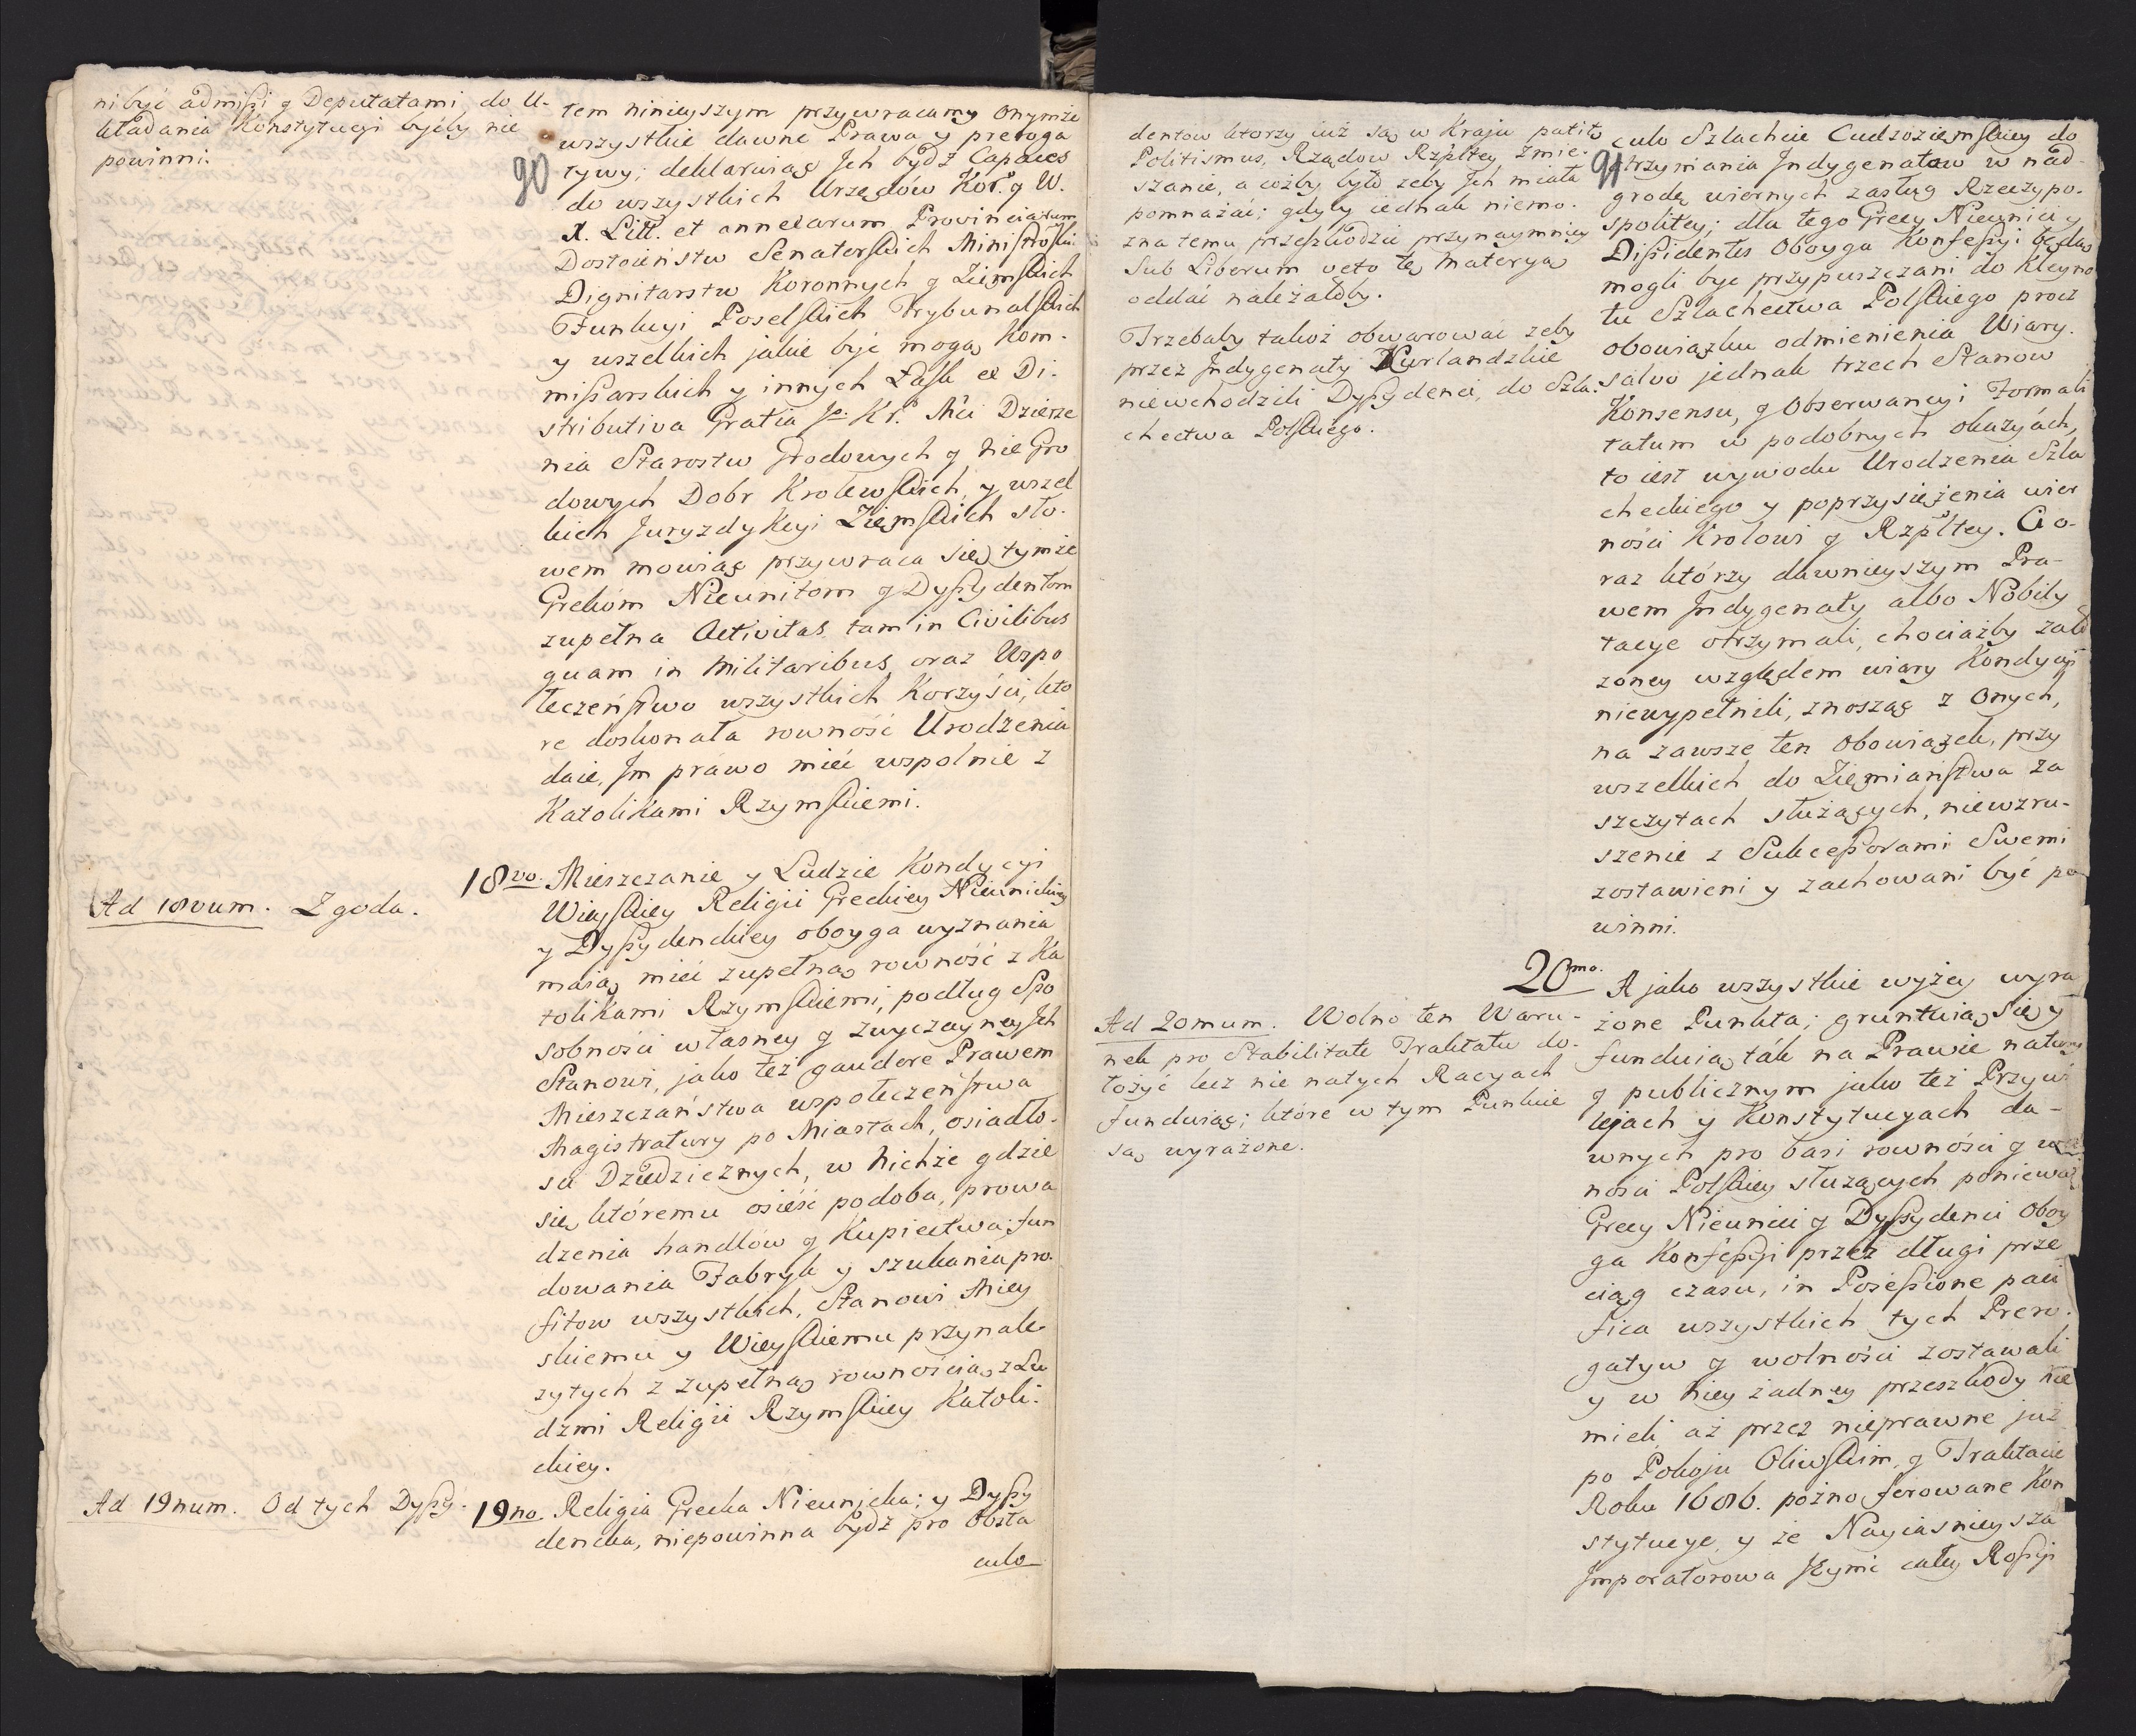 ni być admissi y Deputatami do U-
kładania Konstytucyi byćby nie
powinni.
Ad 18vum. Zgoda.
Ad 19num. Od tych Dyssy-
90
tem ninieyszym przywracamy onymże
wszystkie dawne Prawa y preroga
tywy; deklaruiąc Ich bydź Capaces
do wszystkich Urzędów Kor. y W.
X. Litt. et annexarum Provinciarum
Dostoieństw Senatorskich Ministroski.
Dignitarstw Koronnych y Ziemskich
Funkcyi Poselskich Trybunalskich
y wszelkich jakie być mogą Kom-
missarskich y innych Łask ex Di-
stributiva Gratia Je. Kr. Mci Dzierże
nia Starostw Grodowych y nie Gro
dowych Dobr Krolewskich, y wszel
kich Juryzdykcyi Ziemskich sło-
wem mowiąc przywraca się tymże
Grekóm Nieunitom y Dyssydentom
zupełna Activitas tam in Civilibus
quam in Militaribus oraz Uspo
łeczeństwo wszystkich Korzyści, kto
re doskonała rowność Urodzenia
daie, Im prawo mieć wspolnie z
Katolikami Rzymskiemi.
18vo. Mieszczanie y Ludzie Kondycyi
Wieyskiey Religii Greckiey Nieunickiey
y Dyssydenckiey oboyga wyznania
maią mieć zupełną rowność z Ka
tolikami Rzymskiemi, podług Spo
sobności własney y zwyczayney Ich
Stanowi, jako też gaudere Prawem
Mieszczaństwa uspołeczeństwa
Magistratury po Miastach, osiadło-
sci Dziedzicznych, w nichże gdzie
się któremu osieść podoba, prowa
dzenia handlow y Kupiectwa, fun
dowania Fabryk y szukania pro-
fitow wszystkich, Stanowi Miey
skiemu y Wieyskiemu przynale-
zytych z zupełną rownością z Lu
dzmi Religii Rzymskiey Katoli-
ckiey.
19no. Religia Grecka Nieunicka; y Dyssy
dencka, niepowinna bydź pro Obsta
culo
dentow ktorzy iuż są w Kraju patitr
Politismus, Rządow Rzpltey, zmie-
szanie, a cożby było zeby Ich miała
pomnażać; gdyby iednak niemo-
zna temu przeszkodzic przynaymniey
Sub Liberum veto tę Materyą
oddać należałoby.
Trzebaby takoż obwarować zeby
przez Indygenaty Kurlandzkie
niewchodzili Dyssydenci, do Szla-
chectwa Polskiego.
Ad 20mum. Wolno ten Waru-
nek pro Stabilitate Traktatu do-
łożyć lecz nie natych Racyach
funduiąc; które w tym Punkcie
są wyrażone.
91
culo Szlachcie Cudzoziemskiey do
otrzymania Indygenatow w nad-
grodę wiernych zasług Rzeczypo-
spolitey; dla tego Grecy Nieunici y
Dissidentes Oboyga Konfessyi będą
mogli byc przypuszczani do Kleyno
tu Szlachectwa Polskiego procz
obowiązku odmienienia Wiary.
salvo jednak trzech Stanow
Konsensu, y Obserwancyi Formali
tatum w podobnych okazyach,
to iest wywodu Urodzenia Szla
checkiego y poprzysiężenia wier
ności Krolowi y Rzpltey. Cio-
raz którzy dawnieyszym Pra-
wem Indygenaty albo Nobily
tacye otrzymali, chociażby zało
zoney względem wiary Kondycyi
niewypełnili, znosząc z onych,
na zawsze ten obowiązek, przy
wszelkich do Ziemiaństwa za
szczytach służących, niewzru-
szenie z Sukcessorami Swemi
zostawieni y zachowani być po
winni.
20mo. A jako wszystkie wyżey wyra
żone Punkta; gruntuią się y
funduią ták na Prawie natury
y publicznym jako też Przywi
lejach y Konstytucyach da-
wnych pro basi rowności y wol
ności Polskiey służących ponieważ
Grecy Nieunici y Dyssydenci Oboy
ga Konfessyi przez długi prze
ciąg czasu, in Posessione paci
fica wszystkich tych Prero-
gatyw y wolności zostawali
y w niey żadney przeszkody nie
mieli aż przez nieprawne już
po Pokoju Oliwskim, y Traktacie
Roku 1686. pożno ferowane Kon
stytucye, y że Nayiasnieysza
Imperatorowa Jeymć całey Rossyi